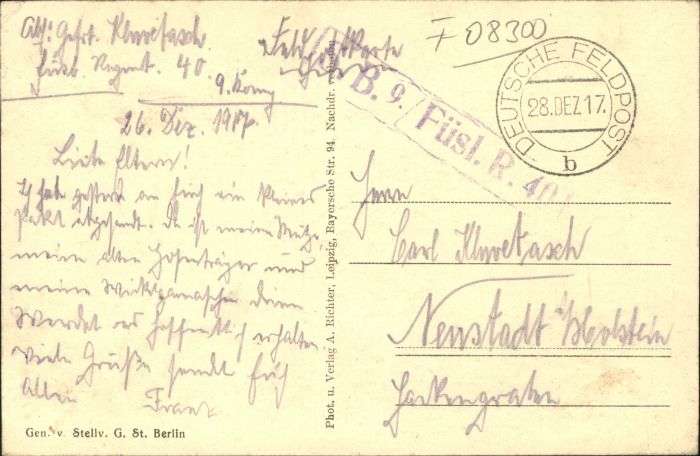 Abs: Gefrt. Klweetasch
Füsr. Regmt. 40.
9. Komp
Feldpostkarte
F 08300
DEUTSCHE FELDPOST
28.DEZ.17.
b
B. 9./Füsl. R. 40
26. Dez. 1917
Liebe Eltern!
Ich habe gestern an Euch ein kleines
Paket abgesandt. Da ist meine Mütze,
meine alten Hosenträger und
meine Wickelgamaschen drin
Werdet es hoffentlich erhalten
Viele Grüße sendt Euch
Allen Franz
Herrn
Carl Klweetasch
Neustadt i/Holstein
Hackengraben
Phot. u. Verlag A. Richter, Leipzig, Bayersche Str. 94. Nachdr. verboten
Gen. v. Stellv. G. St. Berlin